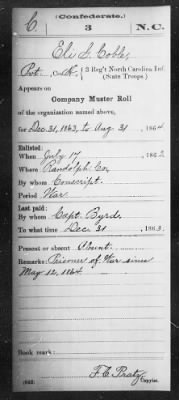 C.
(Confederate.)
3 N.C.
Eli S. Coble,
Pvt. Co. H, 3 Reg't North Carolina Inf.
(State Troops.)
Appears on
Company Muster Roll
of the organization named above,
for Dec. 31, 1863, to Aug 31, 1864
Enlisted:
When July 17, 1862
Where Randolph Co.
By whom Conscript.
Period War.
Last paid:
By whom Capt. Byrd.
To what time Dec 31, 1863.
Present or absent Absent.
Remarks: Prisoner of War since
May 12, 1864.
Book mark:
(642) F. C. Pratz
Copyist.